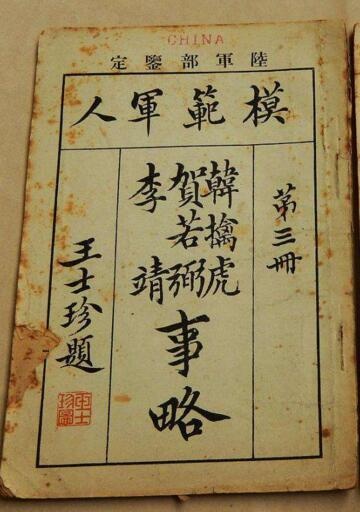 CHINA
陸軍部鑒定
模範軍人
第三冊
韓擒虎
賀若弼
李靖
事略
王士珍題